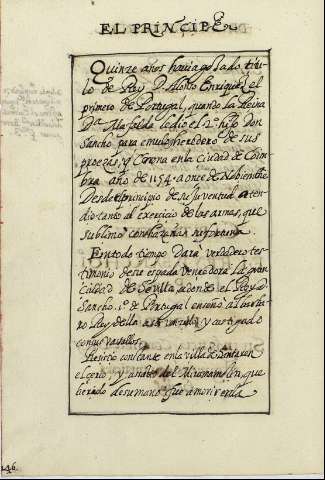 EL PRINCIPE
Quinze años havia gosado titu-
lo de Rey D. Alonso Enriquez el
primero de Portugal, quando la Reina
Dª Mafalda le dio el 2º hijo Don
Sancho para emulo heredero de sus
proezas, y Corona en la ciudad de Coim
bra año de 1154. a onze de Nobiembre
Desde el principio de su juventud aten
dio tanto al exercicio de las armas, que
sublimó con hazañas su fortuna.
En todo tiempo Dará verdadero tes-
timonio de su espada venzedora La gran
ciudad de Sevilla adonde el Rey D.
Sancho 1º de Portugal enseñó a
no Rey della a ser y castigado
con sus vasallos.
Resistio constante en la villa de Santaren
el cerco, y asalto del Miramamolin, que
herido de su mano fue a morir en la
146.